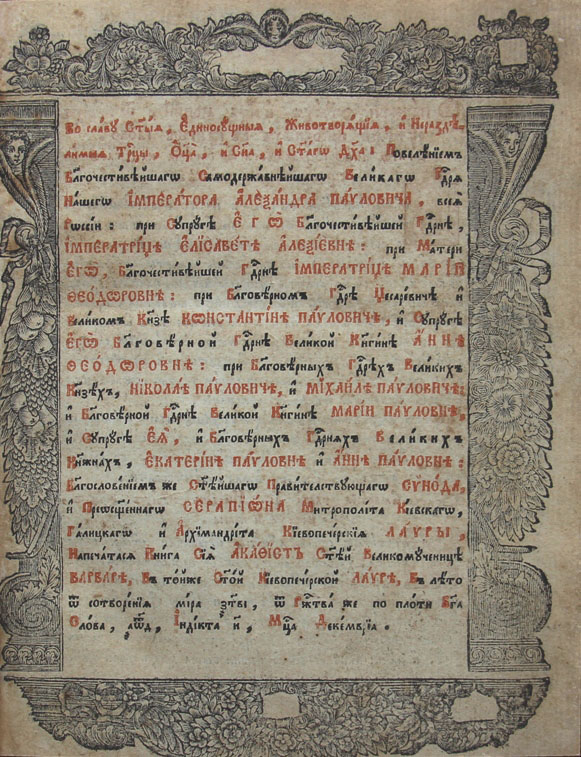 Во славу Ст҃ыѧ, Є҆диносꙋщныѧ, Животворѧщїѧ, и҆ Нераздѣ-
лимыѧ Трⷪ҇цы, Ѻ҆ц҃а̀, и҆ Сн҃а, и҆ Ст҃агѡ Дх҃а: Повелѣнїемъ
Благочестивѣйшагѡ Самодержавнѣйшагѡ Великагѡ Гдⷭ҇рѧ
Нашегѡ І҆МПЕРАТОРА А҆ЛЕѮАНДРА ПАѴЛОВИЧА, всеѧ̀
Рѡссїи: при Сꙋпрꙋгѣ Є҆ГѠ̀ Благочестивѣйшей Гдⷭ҇рнѣ,
І҆МПЕРАТРИЦѢ Є҆ЛІСАВЕТѢ АЛЕѮІЕВНѢ: при Матери
Є҆ГѠ̀, Благочестивѣйшей Гдⷭ҇рнѣ І҆МПЕРАТРИЦѢ МАРІИ
ѲЕОДѠРОВНѢ: при Благовѣрномъ Гдⷭ҇рѣ Цесаревичѣ и҆
Великомъ Кнѧзѣ КѠНСТАНТІНѢ ПАѴЛОВИЧѢ, и҆ Сꙋпрꙋгѣ
Є҆ГѠ̀ Благовѣрной Гдⷭ҇рнѣ Великой Кнгинѣ А҆ННѢ
ѲЕОДѠРОВНѢ: при Благовѣрныхъ Гдⷭ҇рѣхъ Великихъ
Кнѧзѣхъ, НІКОЛАѢ ПАѴЛОВИЧѢ, и҆ МІХАИЛѢ ПАѴЛОВИЧѢ:
и҆ Благовѣрной Гдⷭ҇рнѣ Великой Кнгинѣ МАРІИ ПАѴЛОВНѢ,
и҆ Сꙋпрꙋгѣ Є҆Ѧ̀, и҆ Благовѣрныхъ Гдⷭ҇рнѧхъ Великихъ
Кнѧжнахъ, Є҆КАТЕРІНѢ ПАѴЛОВНѢ и҆ А҆ННѢ ПАѴЛОВНѢ:
Благословенїемъ же Ст҃ѣйшагѡ Правителствꙋющагѡ СѴНОДА,
и҆ Преѡсщ҃еннагѡ СЕРАПІѠНА Митрополіта Кїевскагѡ,
Галицкагѡ и҆ А҆рхїмандріта Кїевопечерскїѧ ЛАѴРЫ,
Напечатасѧ Книга Сїѧ̀ А҆КАѲІСТЪ Ст҃ѣй Великомꙋченицѣ
ВАРВАРѢ, Въ тойже Ст҃ой Кїевопечерской ЛАѴРѢ, Въ лѣто
ѿ сотворенїѧ мїра ҂зтвⷩ҇ı, ѿ Ржⷭ҇тва же по плоти Бг҃а
Слова, ҂аѡд, І҆ндїкта и҃, Мцⷭ҇а Декемврїа.